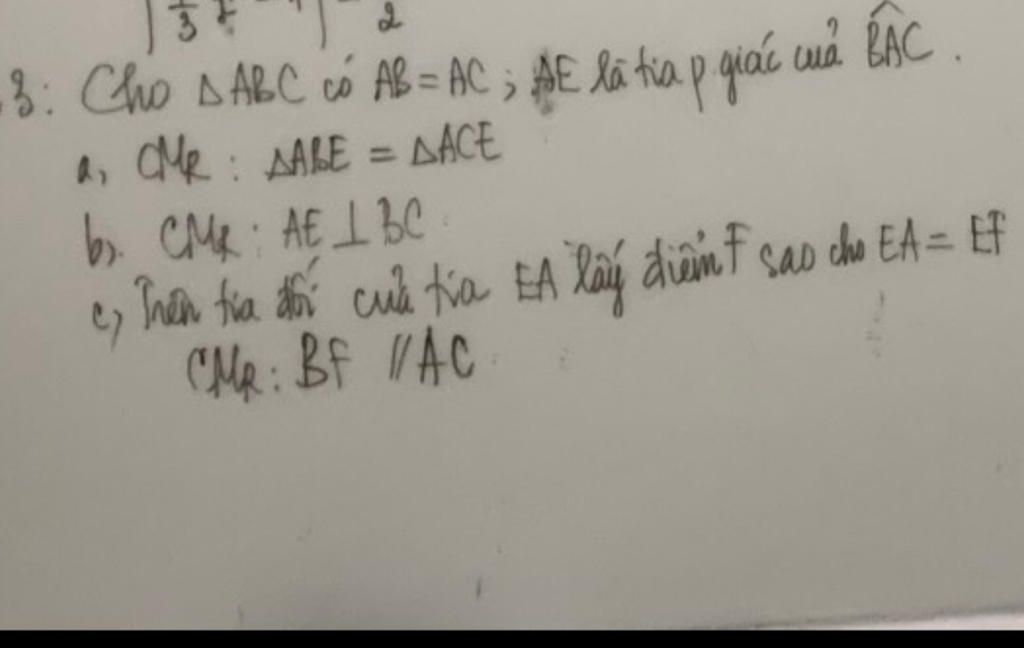 3: Cho ΔABC có AB = AC ; AE là tia p.giác cuả B̂AC .
a, CMR : ΔABE = ΔACE
b, CMR : AE ⊥ BC
c, Trên tia đối cuả tia EA lấy điểm F sao cho EA = EF
CMR : BF // AC